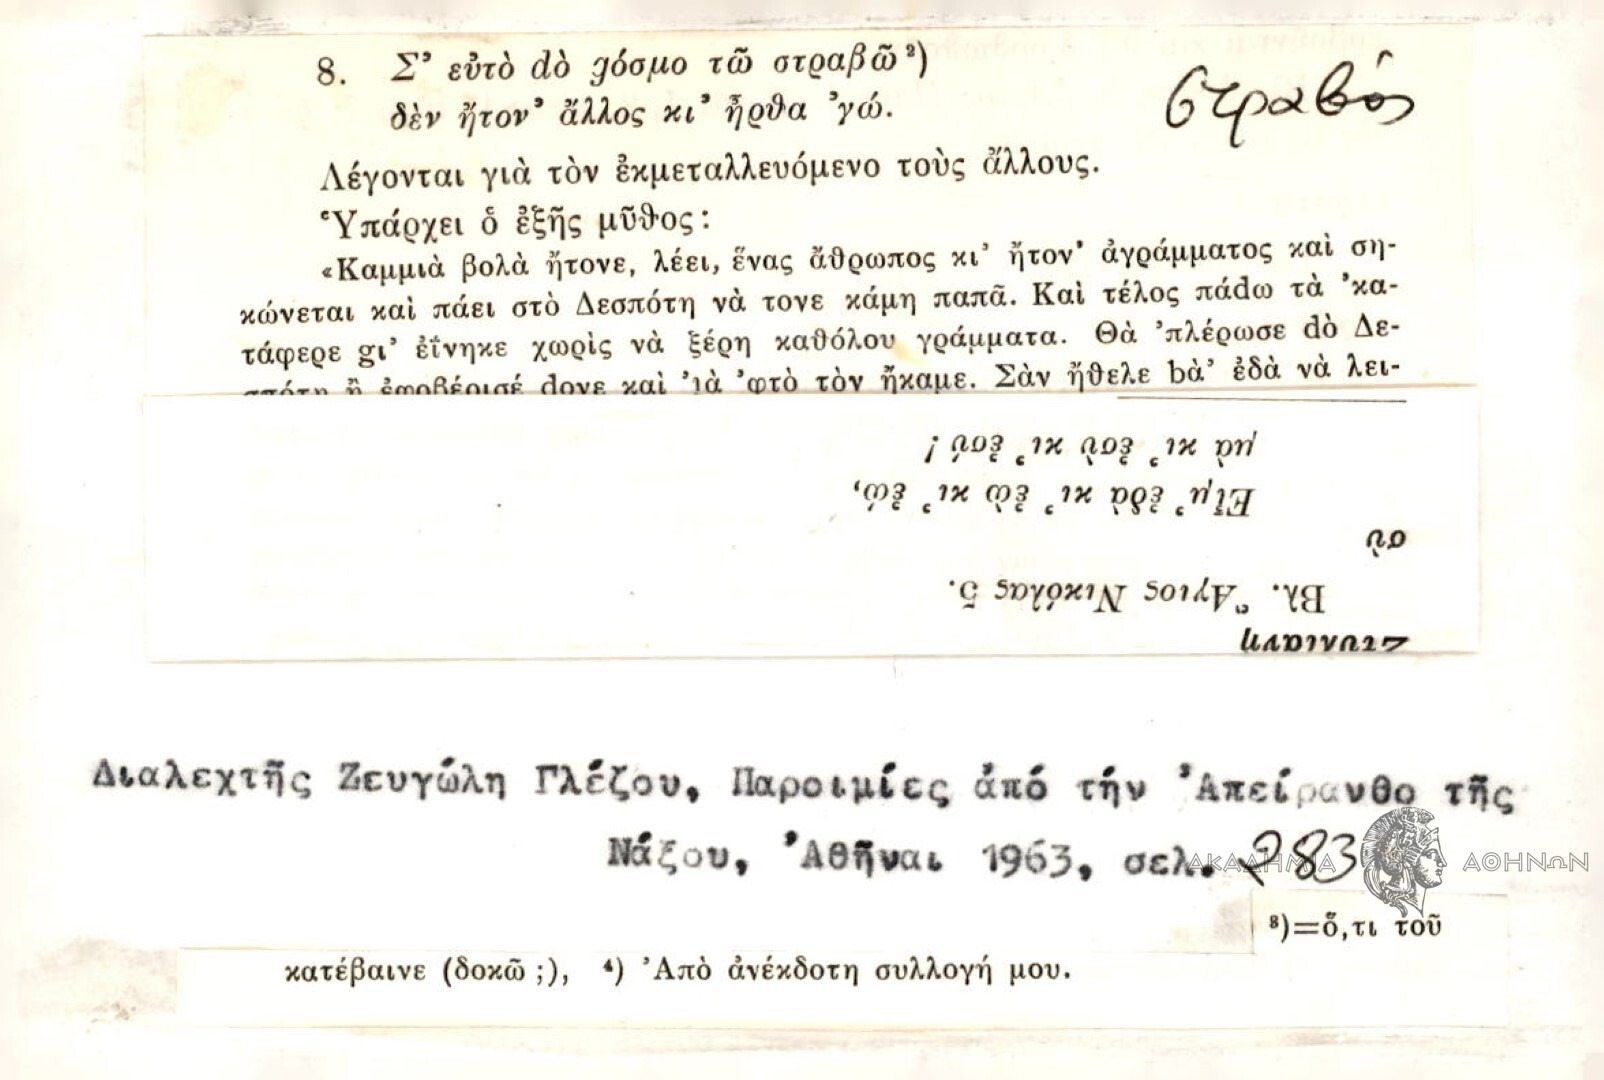 8. Σ' εὐτὸ dὸ gόσμο τῶ στραβῶ ²)
στραβός
δὲν ἤτον' ἄλλος κι' ἦρθα 'γώ.
Λέγονται γιὰ τὸν ἐκμεταλλευόμενο τοὺς ἄλλους.
Ὑπάρχει ὁ ἐξῆς μῦθος:
«Καμμιὰ βολὰ ἤτονε, λέει, ἕνας ἄθρωπος κι' ἤτον' ἀγράμματος καὶ ση-
κώνεται καὶ πάει στὸ Δεσπότη νὰ τονε κάμη παπᾶ. Καὶ τέλος πάdω τὰ 'κα-
τάφερε gι' ἐΐνηκε χωρὶς νὰ ξέρη καθόλου γράμματα. Θὰ 'πλέρωσε dὸ Δε-
σπότη ἢ ἐφοβέρισέ dονε καὶ 'ιὰ 'φτὸ τὸν ἤκαμε. Σὰν ἤθελε bὰ' ἐδὰ νὰ λει-
μὰ κι' ἐσὺ κι' ἐσύ;
Εἶμ' ἐδὰ κι' ἐὼ κι' ἐώ,
σὺ
Βλ. Ἅγιος Νικόλας 5.
Στυλιανὴ
Διαλεχτῆς Ζευγώλη Γλέζου, Παροιμίες ἀπό τήν 'Απείρανθο τῆς
Νάξου, 'Αθῆναι 1963, σελ. 283
ΑΚΑΔΗΜΙΑ ΑΘΗΝΩΝ
³)=ὅ,τι τοῦ
κατέβαινε (δοκῶ ;), ⁴) 'Απὸ ἀνέκδοτη συλλογή μου.